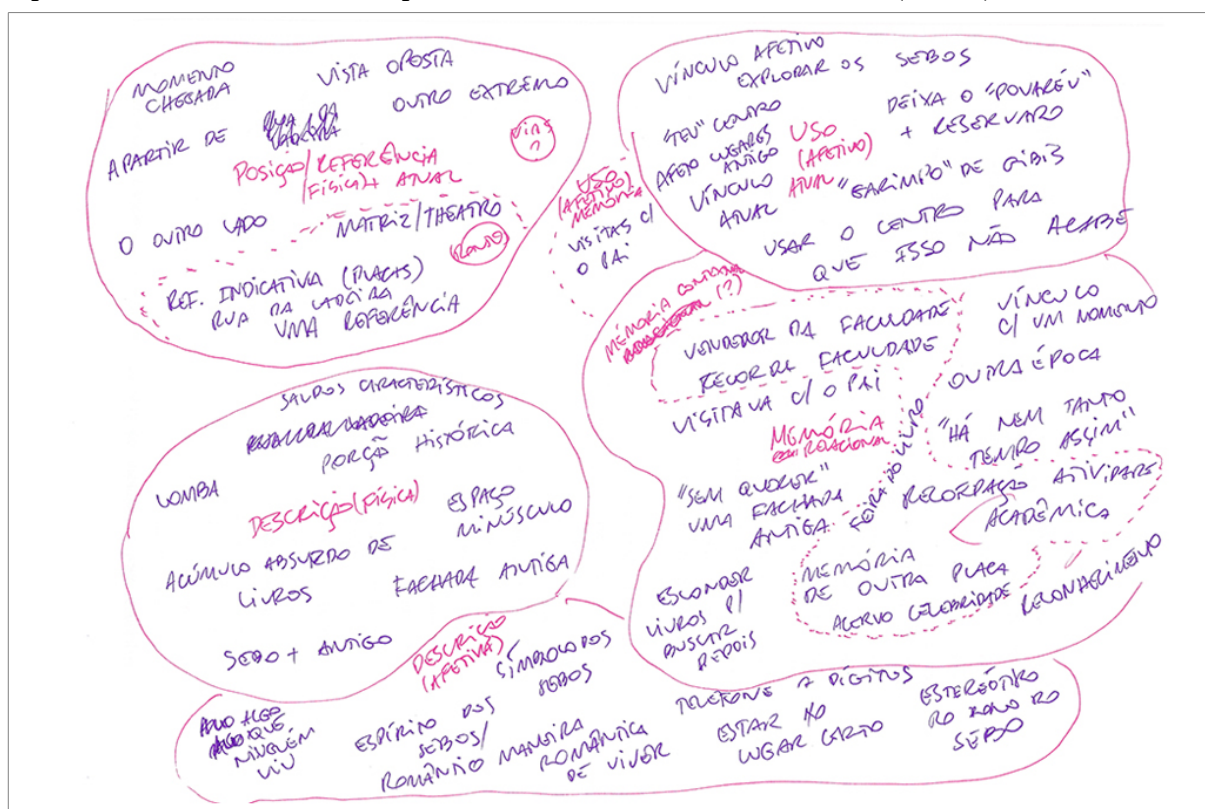 MOMENTO
CHEGADA
VISTA OPOSTA
A PARTIR DE
OUTRO EXTREMO
VIAS
?
POSIÇÃO/REFERÊNCIA
FÍSICA + ATUAL
O OUTRO LADO
MATRIZ/THEATRO
REF. INDICATIVA (PLACAS)
RUA DA LADEIRA
UMA REFERÊNCIA
USO
(AFETIVO)
MEMÓRIA
VISITAS C/
O PAI
VÍNCULO AFETIVO
EXPLORAR OS SEBOS
"TEU" CENTRO
AFETO LUGARES
ANTIGO
VÍNCULO
ATUAL
USO
(AFETIVO)
ATUAL
DEIXA O "POVARÉU"
+ RESERVADO
"GARIMPO" DE GIBIS
USAR O CENTRO PARA
QUE ISSO NÃO ACABE
MEMÓRIA
(?)
VENDEDOR DA FACULDADE
RECORDA FACULDADE
VISITAVA C/ O PAI
MEMÓRIA
VÍNCULO
C/ UM MOMENTO
OUTRA ÉPOCA
"HÁ NEM TANTO
TEMPO ASSIM"
"SEM QUERER"
UMA FACHADA
ANTIGA
FEIRA DO LIVRO
RECORDAÇÃO ATIVIDADE
ACADÊMICA
ESCONDER
LIVROS P/
BUSCAR
DEPOIS
MEMÓRIA
DE OUTRA PLACA
ACERVO CELEBRIDADE
RECONHECIMENTO
SALDOS CARACTERÍSTICOS
PORÇÃO HISTÓRICA
LOMBA
DESCRIÇÃO (FÍSICA)
ESPAÇO
MINÚSCULO
ACÚMULO ABSURDO DE
LIVROS
FACHADA ANTIGA
SEBO + ANTIGO
DESCRIÇÃO
(AFETIVA)
ALGO
QUE
NINGUÉM
VIU
ESPÍRITO DOS
SEBOS/
ROMÂNTICO
SÍMBOLO DOS
SEBOS
MANEIRA
ROMÂNTICA
DE VIVER
TELEFONE 7 DÍGITOS
ESTAR NO
LUGAR CERTO
ESTEREÓTIPO
DO DONO DO
SEBO